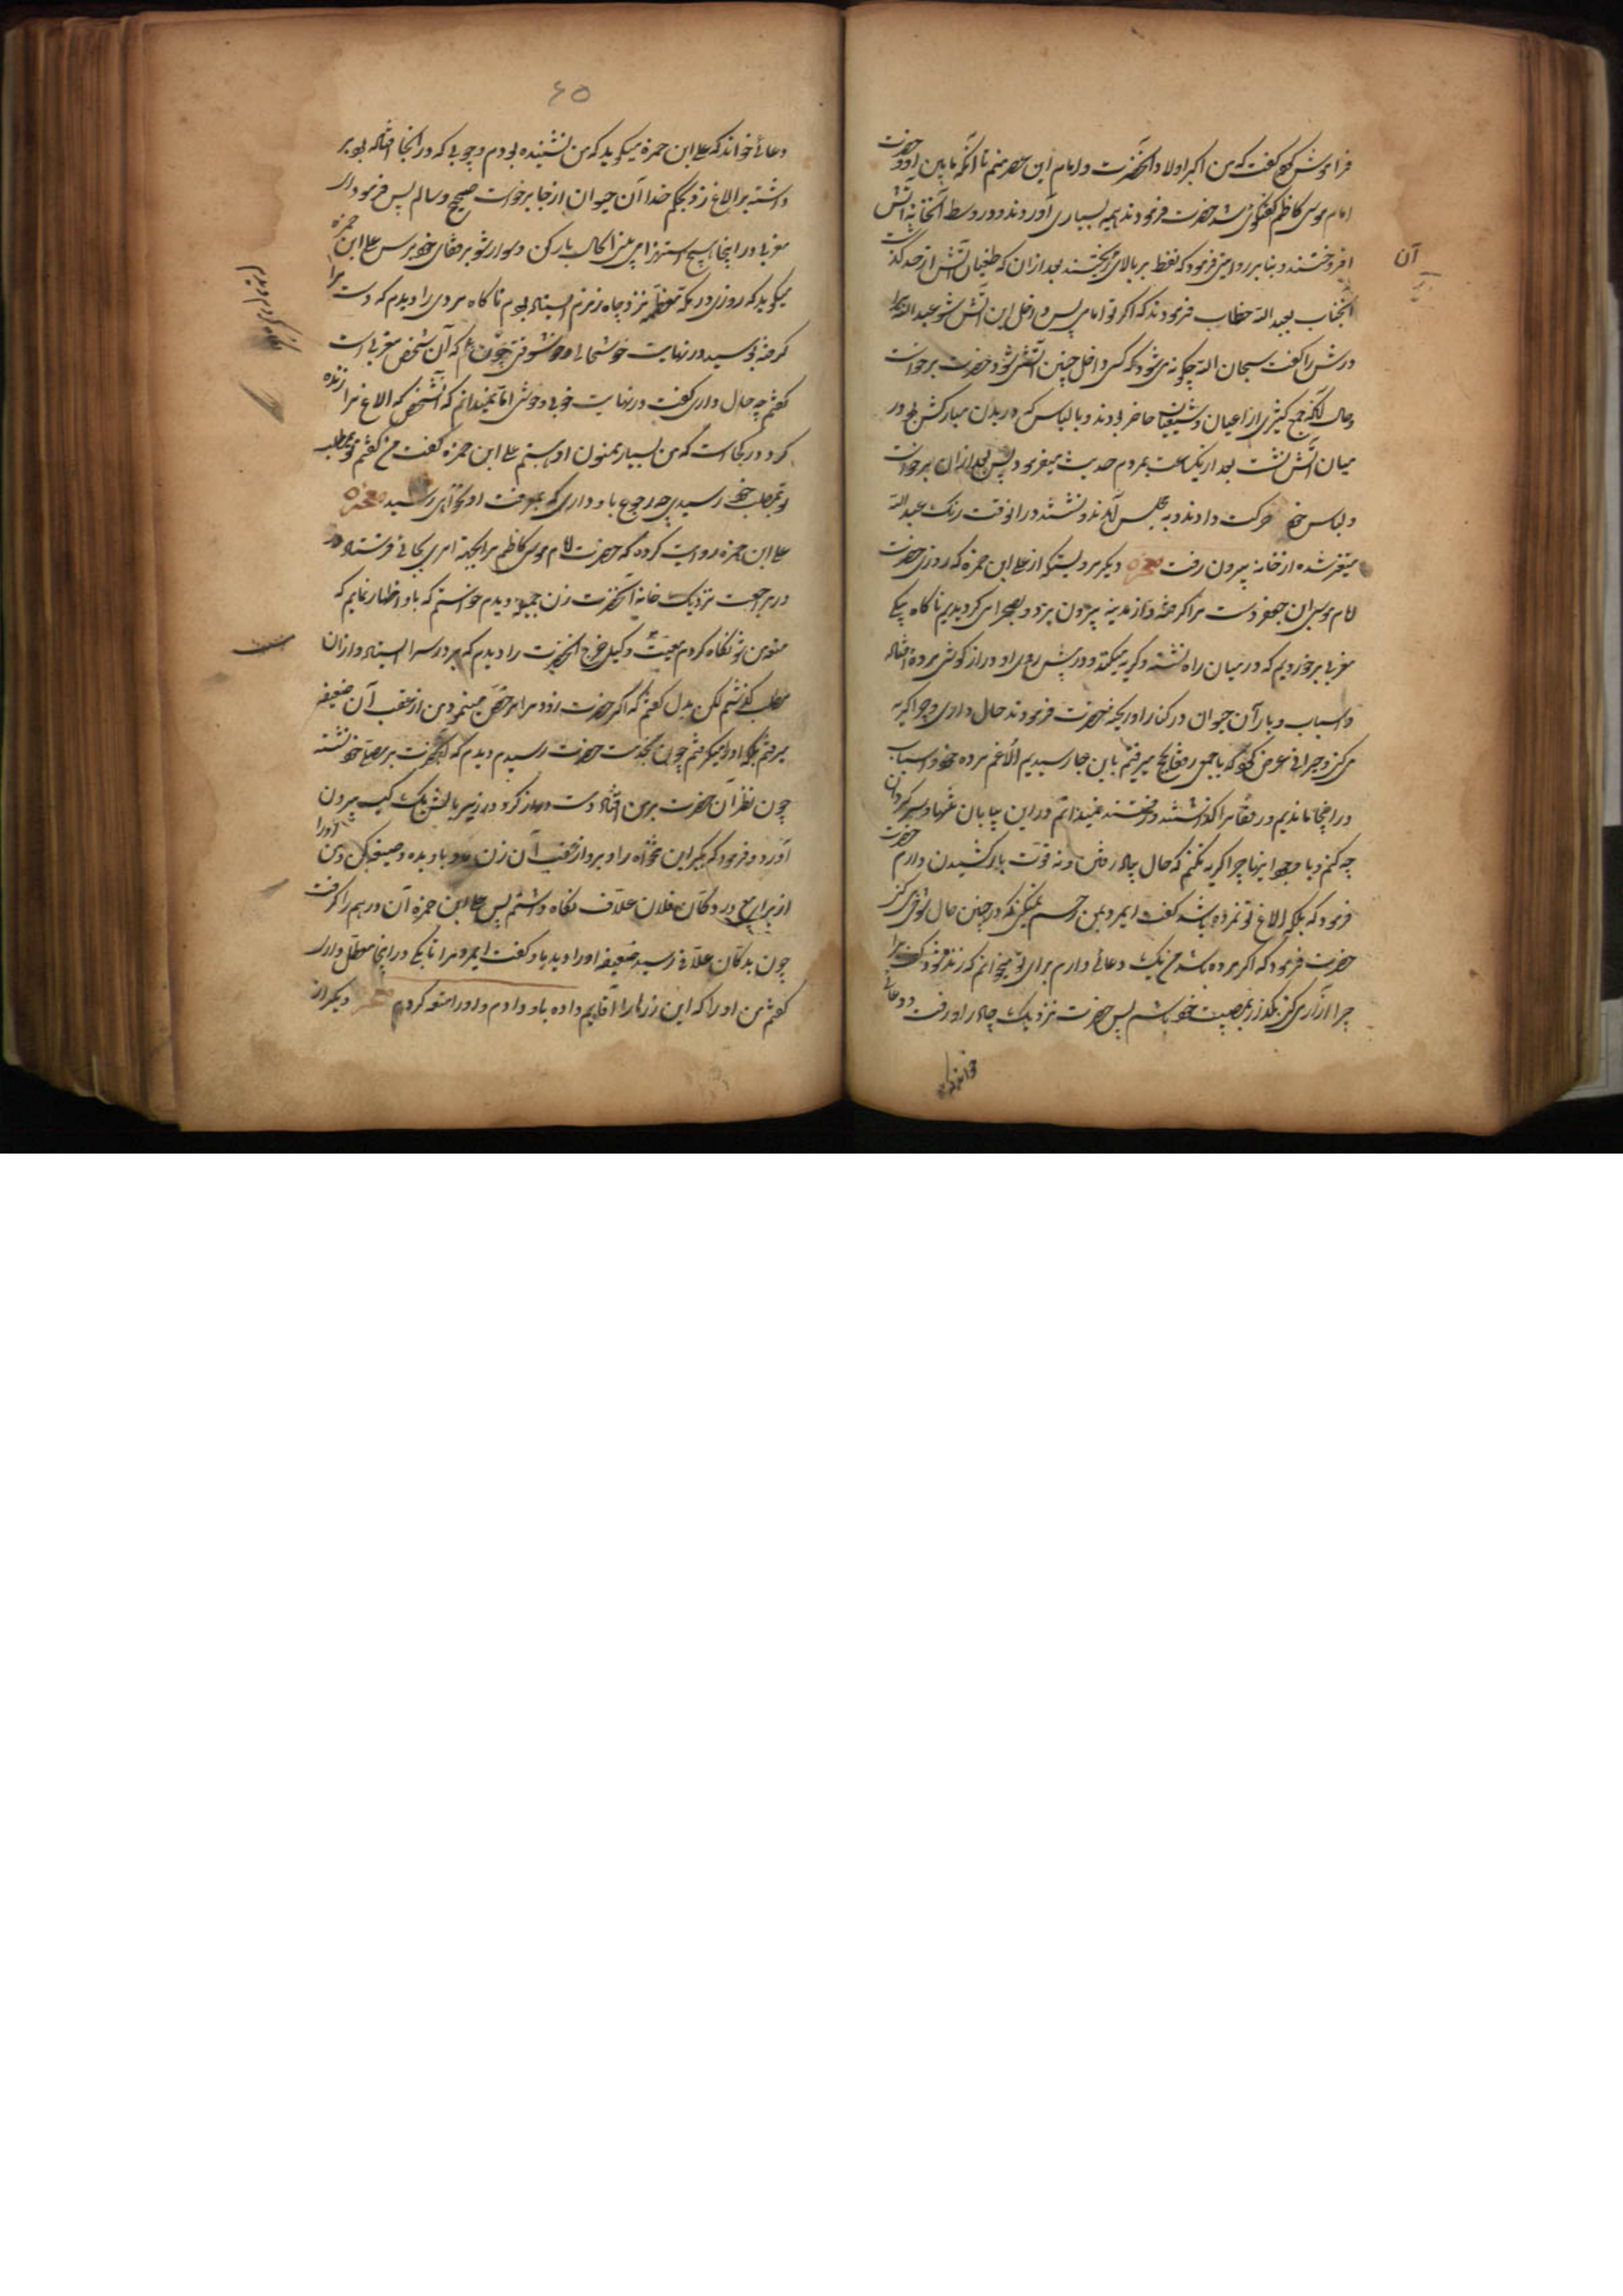 فراموش کرده گفت که من اکبر اولاد آنحضرت و امام این عصر منم تا آنکه مابین او و حضرت
امام موسی کاظم گفتگوی شد حضرت فرمودند هیمه بسیاری آوردند و در وسط آنخانه آتش
افروختند و بنا بر روایتی فرمود که نفط بر بالای ریختند بعد از آن که طغیان آتش از حد گذشت
آنجناب بعبد الله خطاب فرمودند که اگر تو امامی پس داخل این آتش شو عبد الله
درش را گفت سبحان الله چگونه می شود که کسی داخل چنین آتشی شود حضرت برخواست
و حال آنکه جمع کثیری از اعیان و شیعیان حاضر بودند و با لباس که در بدن مبارکش بود در
میان آتش نشست بعد از یکساعت بمردم حدیث میفرمود پس بعد از آن برخواست
و لباس خود حرکت دادند و به مجلس آمدند و نشستند در آنوقت رنگ عبد الله
متغیر شده از خانه بیرون رفت معجزه دیگر مرویست از علی ابن حمزه که روزی حضرت
امام موسی ابن جعفر دست مرا گرفته و از مدینه بیرون برد و بصحرا می گردیدیم ناگاه بیکی
مغربی برخوردیم که در میان راه نشسته و گریه میکند و در پیش روی او دراز گوش مرده افتاده
و اسباب و بار آن جوان در کنار او ریخته حضرت فرمودند چه حال داری و چرا گریه
می کنی و حیرانی عرض کرد که با جمعی رفقا بحج میرفتم باین جا رسیدیم الاغم مرده و اسباب
در اینجا ماندیم و رفقا مرا گذاشتند و رفتند نمیدانم در این بیابان تنها و سرگردان
چه کنم و با وجود اینها چرا گریه نکنم که حال پیاده رفتن و نه قوت بار کشیدن دارم حضرت
فرمود که بلکه الاغ تو نمرده باشد گفت ای مرد بمن رحم نمیکنی که در چنین حال شوخی می کنی
حضرت فرمود که اگر مرده باشد من یک دعائی دارم برای تو میخوانم که زنده شود گفت
چرا آزاری می کنی بگذار بمصیبت خود باشم پس حضرت نزدیک چادر او رفت و دعائی
خواند
آن
۶۵
دعائی خواند که علی ابن حمزه میگوید که من نشنیده بودم و چوبی که در آنجا افتاده بود بر
داشته بر الاغ زد بحکم خدا آن حیوان از جا برخواست صحیح و سالم پس فرمود ای
مغربی در اینجا هیچ استهزا می بینی اکال بار کن و سوار شو برفقای خود برس علی ابن حمزه
میگوید که روزی در مکه معظمه نزد چاه زمزم ایستاده بودم ناگاه مردی را دیدم که دست مرا
گرفته بوسید در نهایت خوشحالی و خوشوقتی چون که آن شخص مغربی است
گفتم چه حال داری گفت در نهایت خوبی و خوشی اما نمیدانم که آنشخص که الاغ مرا زنده
کرد در کجاست که من بسیار ممنون او هستم علی ابن حمزه گفت من گفتم تو بمطلب
تو بمطلب خود رسیدی چه رجوع باو داری که بمعرفت او نخواهی رسید معجزه
علی ابن حمزه روایت کرده که حضرت امام موسی کاظم مرا بجهة امری بجائی فرستاد و
در مراجعت نزدیک خانه آنحضرت زن جمیله دیدم خواستم که باو اظهار نمایم که
متعه من شو نگاه کردم وکیل خرج آنحضرت را دیدم که بر در سرا ایستاده از آن
مطلب گذشتم لکن بدل گفتم که اگر حضرت زود مرا مرخص مینمود من از عقب آن ضعیفه
میرفتم بلکه او را میگرفتم چون بخدمت حضرت رسیدم دیدم که آنحضرت بر مصلای خود نشسته
چون نظر آن حضرت بر من افتاد دست دراز کرد و در زیر بالش یک کیسه بیرون
آورد و فرمود که بگیر این تنخواه را و برو از عقب آن زن و باو بده و صیغه کن او را
از برای در دکان فلان علاف نگاه داشتم پس علی ابن حمزه آن درهم را گرفت
چون بدکان علاف رسید ضعیفه او را دید باو گفت ای مرد مرا تا بکی در اینجا معطل داری
گفتم من او را که این زرها را آقایم داده باو دادم و او را متعه کردم معجزه دیگر از